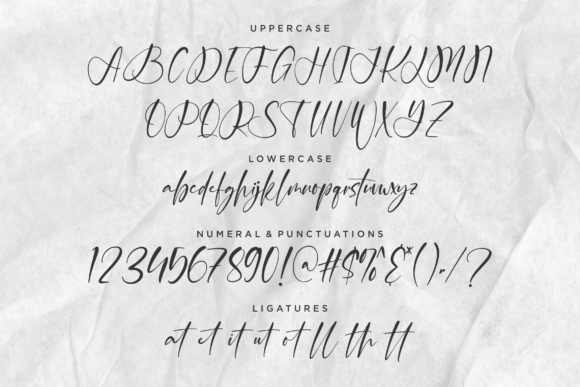 UPPERCASE
ABCDEFGHIJKLMN
OPQRSTUVWXYZ
LOWERCASE
abcdefghijklmnopqrstuvwxyz
NUMERAL & PUNCTUATIONS
1234567890!@#$%^&*().,/?
LIGATURES
at et it ut ot ll th tt